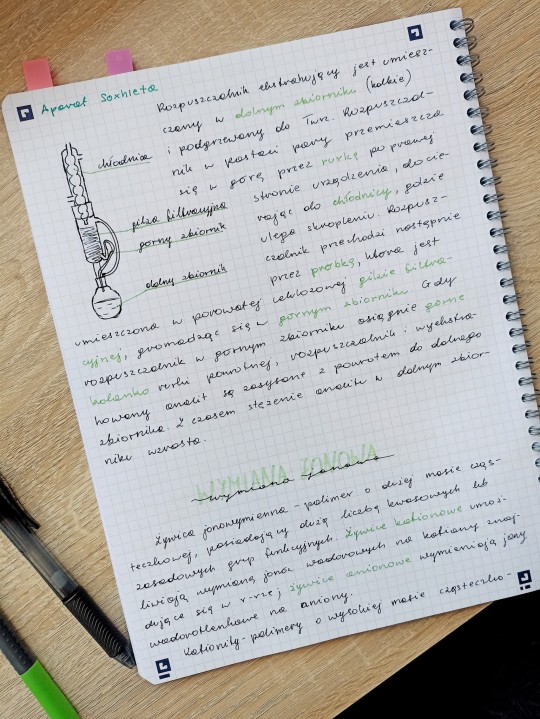 Aparat Soxhleta
Rozpuszczalnik ekstrahujący jest umiesz-
czany w dolnym zbiorniku (kolbie)
i podgrzewany do Twrz. Rozpuszczal-
nik w postaci pary przemieszcza
się w górę przez rurkę po prawej
stronie urządzenia, docie-
rając do chłodnicy, gdzie
ulega skropleniu. Rozpusz-
czalnik przechodzi następnie
przez próbkę, która jest
chłodnica
gilza filtracyjna
górny zbiornik
dolny zbiornik
umieszczona w porowatej celulozowej gilzie filtra-
cyjnej, gromadząc się w górnym zbiorniku. Gdy
rozpuszczalnik w górnym zbiorniku osiągnie górne
kolanko rurki powrotnej, rozpuszczalnik i wyekstra
howany analit są zasysane z powrotem do dolnego
zbiornika. Z czasem stężenie analitu w dolnym zbior-
niku wzrasta.
WYMIANA JONOWA
wymiana jonowa
Żywica jonowymienna - polimer o dużej masie cząs-
teczkowej, posiadający dużą liczbę kwasowych lub
zasadowych grup funkcyjnych. Żywice kationowe umoż-
liwiają wymianę jonów wodorowych na kationy znaj-
dujące się w r-rze, żywice anionowe wymieniają jony
wodorotlenkowe na aniony.
Kationity - polimery o wysokiej masie cząsteczko-